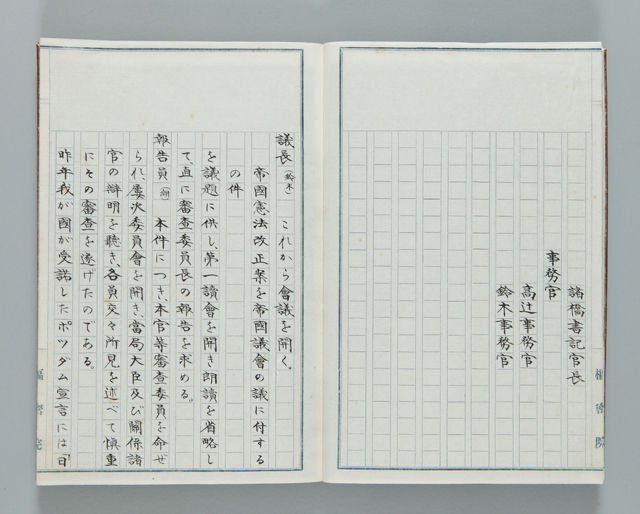 諸橋書記官長
事務官
高辻事務官
鈴木事務官
樞密院
議長(鈴木) これから會議を開く。
帝國憲法改正案を帝國議會の議に付する
の件
を議題に供し、第一讀會を開き朗讀を省略し
て、直に審査委員長の報告を求める。
報告員(潮) 本件につき、本官等審査委員を命ぜ
られ、屡次委員會を開き、當局大臣及び關係諸
官の辯明を聽き、各員交々所見を述べて愼重
にその審査を遂げたのである。
昨年我が國が受諾したポツダム宣言には「日
樞密院